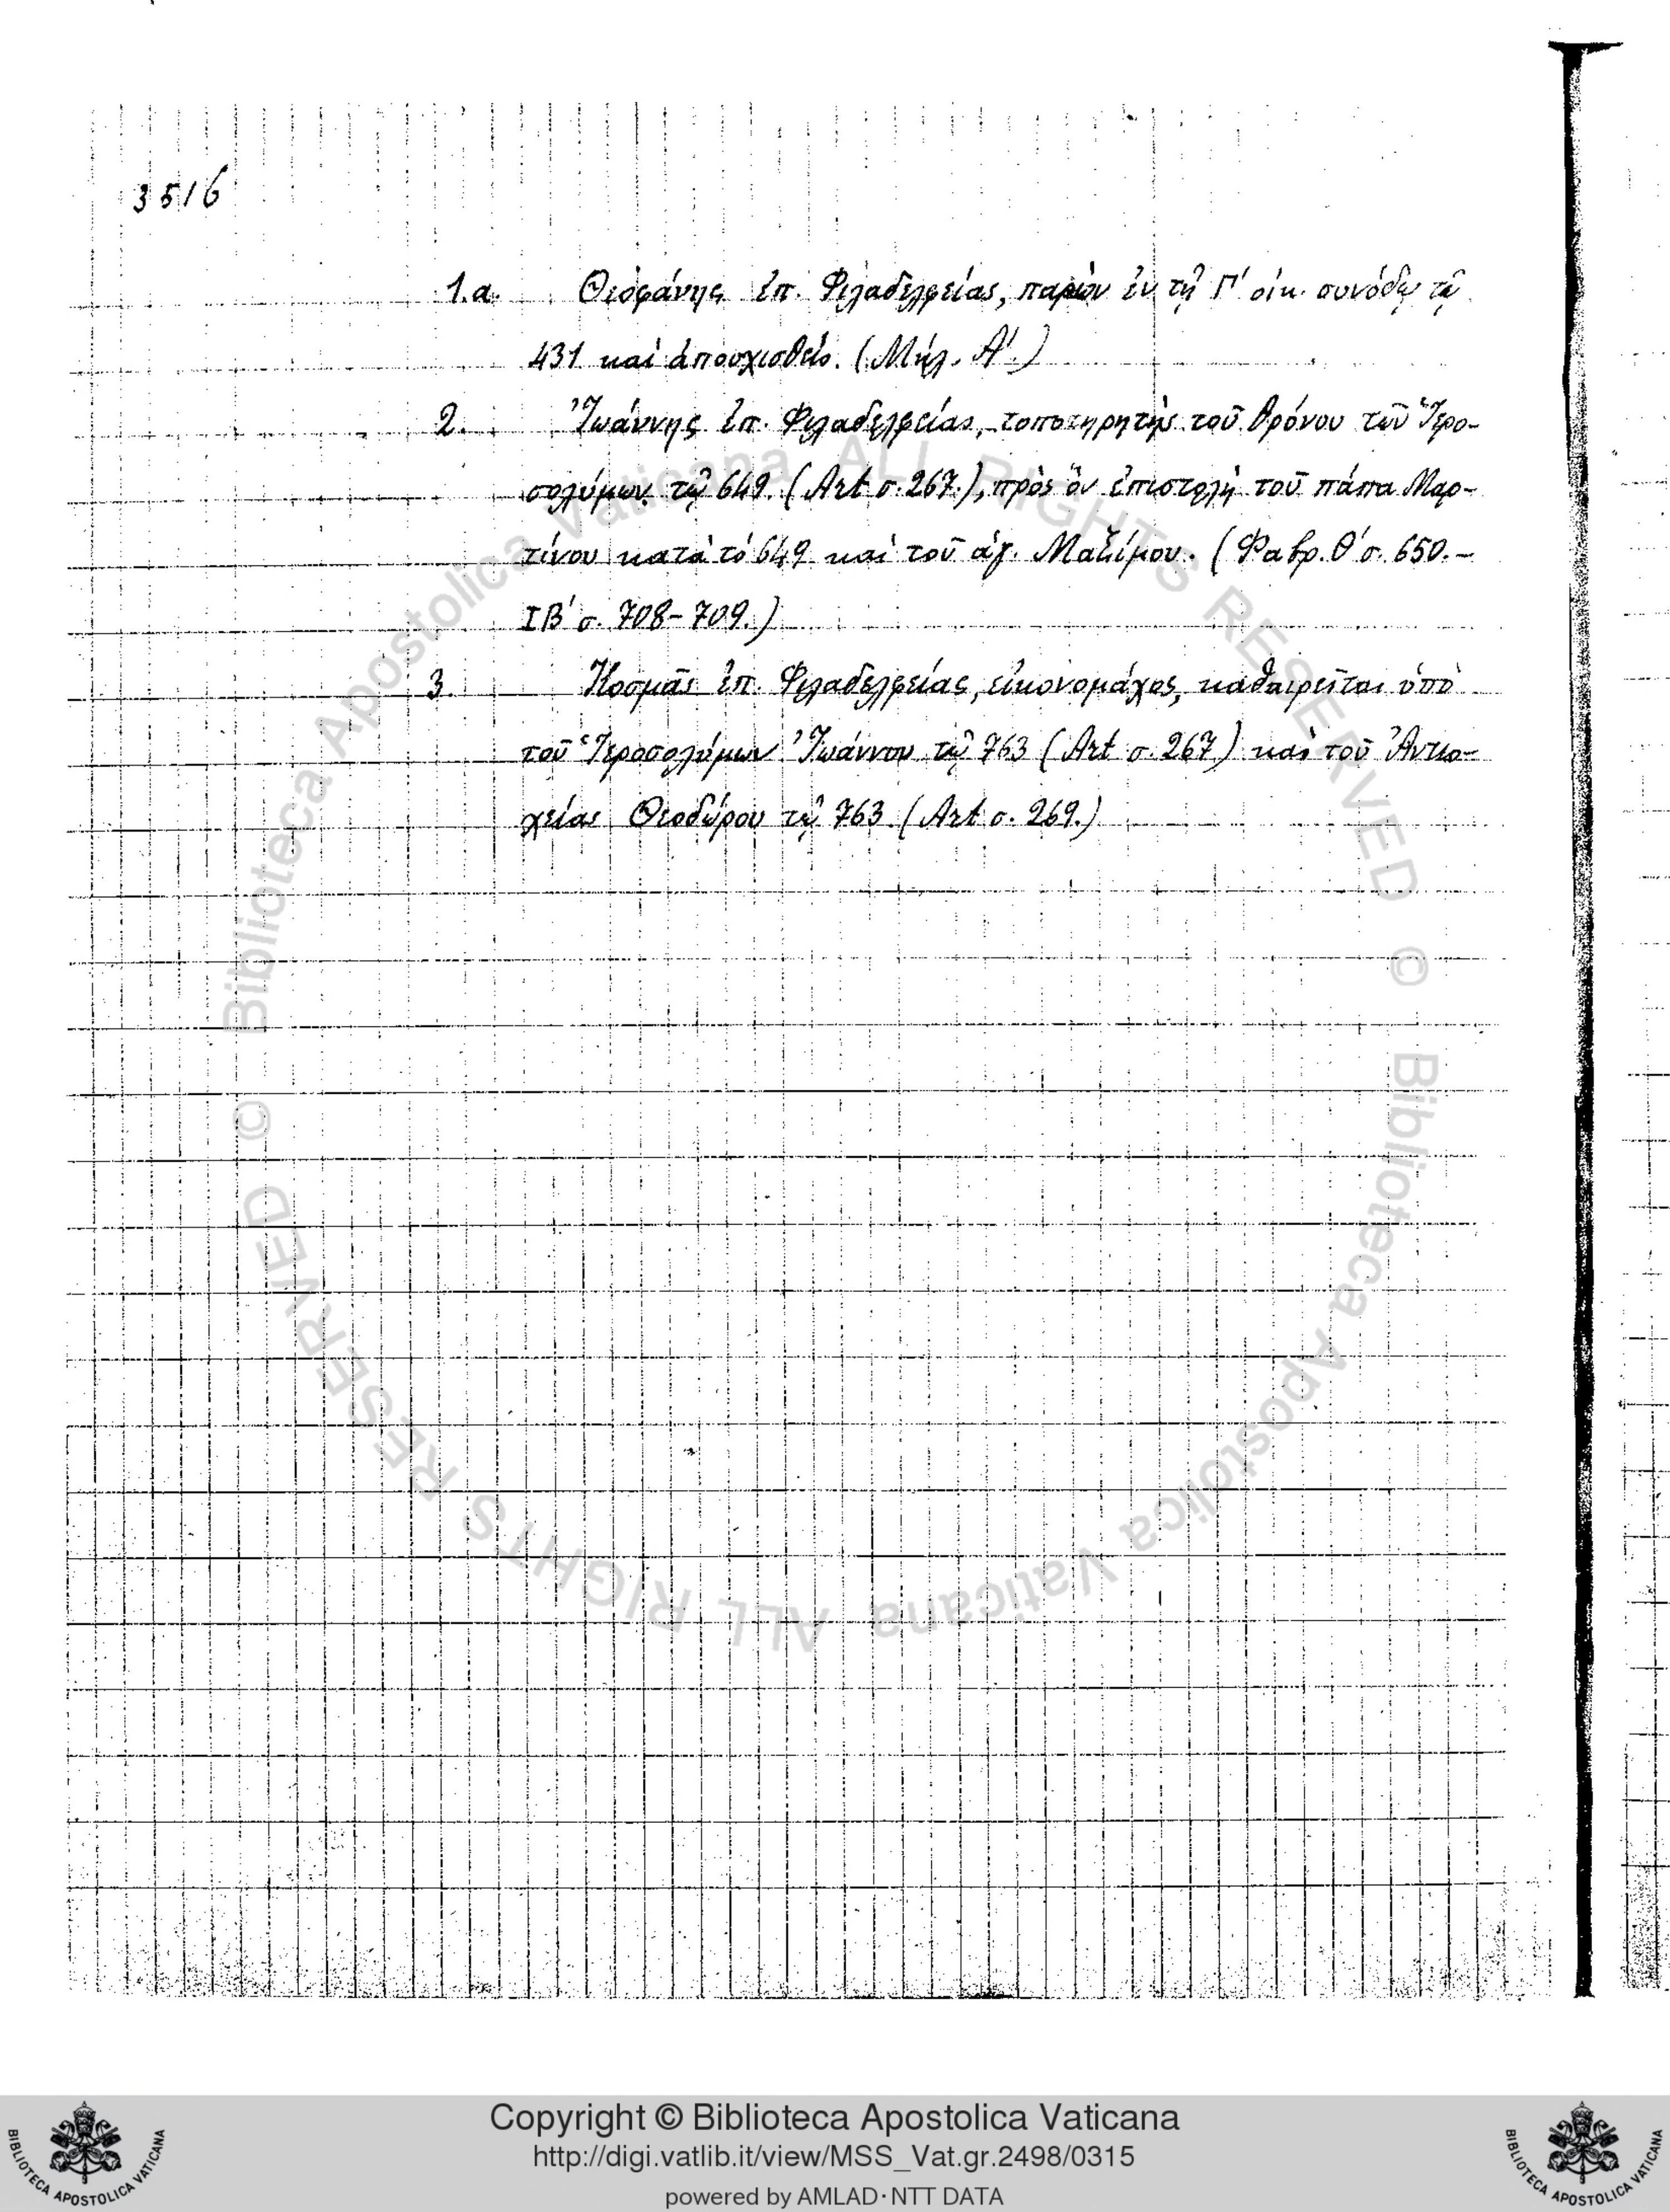 3516
1.α. Θεοφάνης ἐπ. Φιλαδελφείας, παρὼν ἐν τῇ Γ' οἰκ. συνόδῳ τῷ
431 καὶ ἀποσχισθείς. (Μήλ. Α'.)
2. Ἰωάννης ἐπ. Φιλαδελφείας, τοποτηρητὴς τοῦ θρόνου τῶν Ἱερο-
σολύμων τῷ 649. (Art σ. 267.), πρὸς ὃν ἐπιστολὴ τοῦ πάπα Μαρ-
τίνου κατὰ τὸ 649 καὶ τοῦ ἁγ. Μαξίμου. (Φαβρ. Θ' σ. 650.-
ΙΒ' σ. 708-709.)
3. Κοσμᾶς ἐπ. Φιλαδελφείας, εἰκονομάχος, καθαιρεῖται ὑπὸ
τοῦ Ἱεροσολύμων Ἰωάννου τῷ 763 (Art σ. 267) καὶ τοῦ Ἀντιο-
χείας Θεοδώρου τῷ 763 (Art σ. 269.)
© Biblioteca Apostolica Vaticana ALL RIGHTS RESERVED
© Biblioteca Apostolica Vaticana ALL RIGHTS RESERVED
BIBLIOTECA APOSTOLICA VATICANA
Copyright © Biblioteca Apostolica Vaticana
http://digi.vatlib.it/view/MSS_Vat.gr.2498/0315
powered by AMLAD·NTT DATA
BIBLIOTECA APOSTOLICA VATICANA